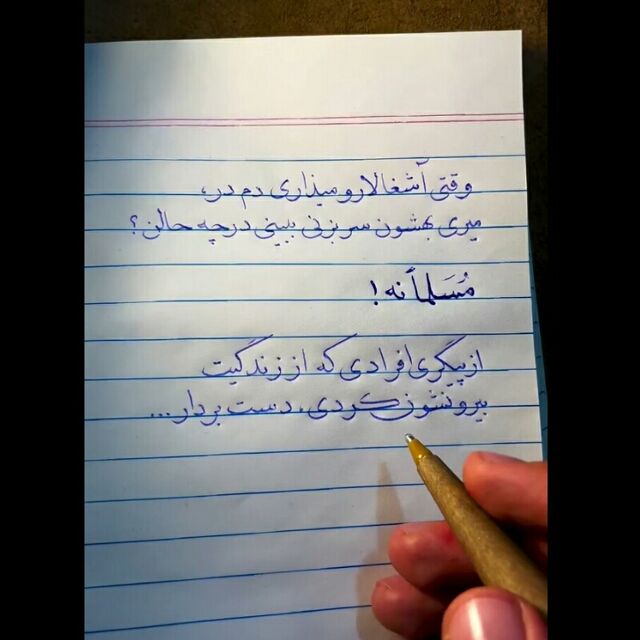 وقتی آشغالارو میذاری دم در،
میری بهشون سر بزنی ببینی در چه حالن؟
مُسَلماً نه!
از پیگیری افرادی که از زندگیت
بیرونشون کردی، دست بردار...